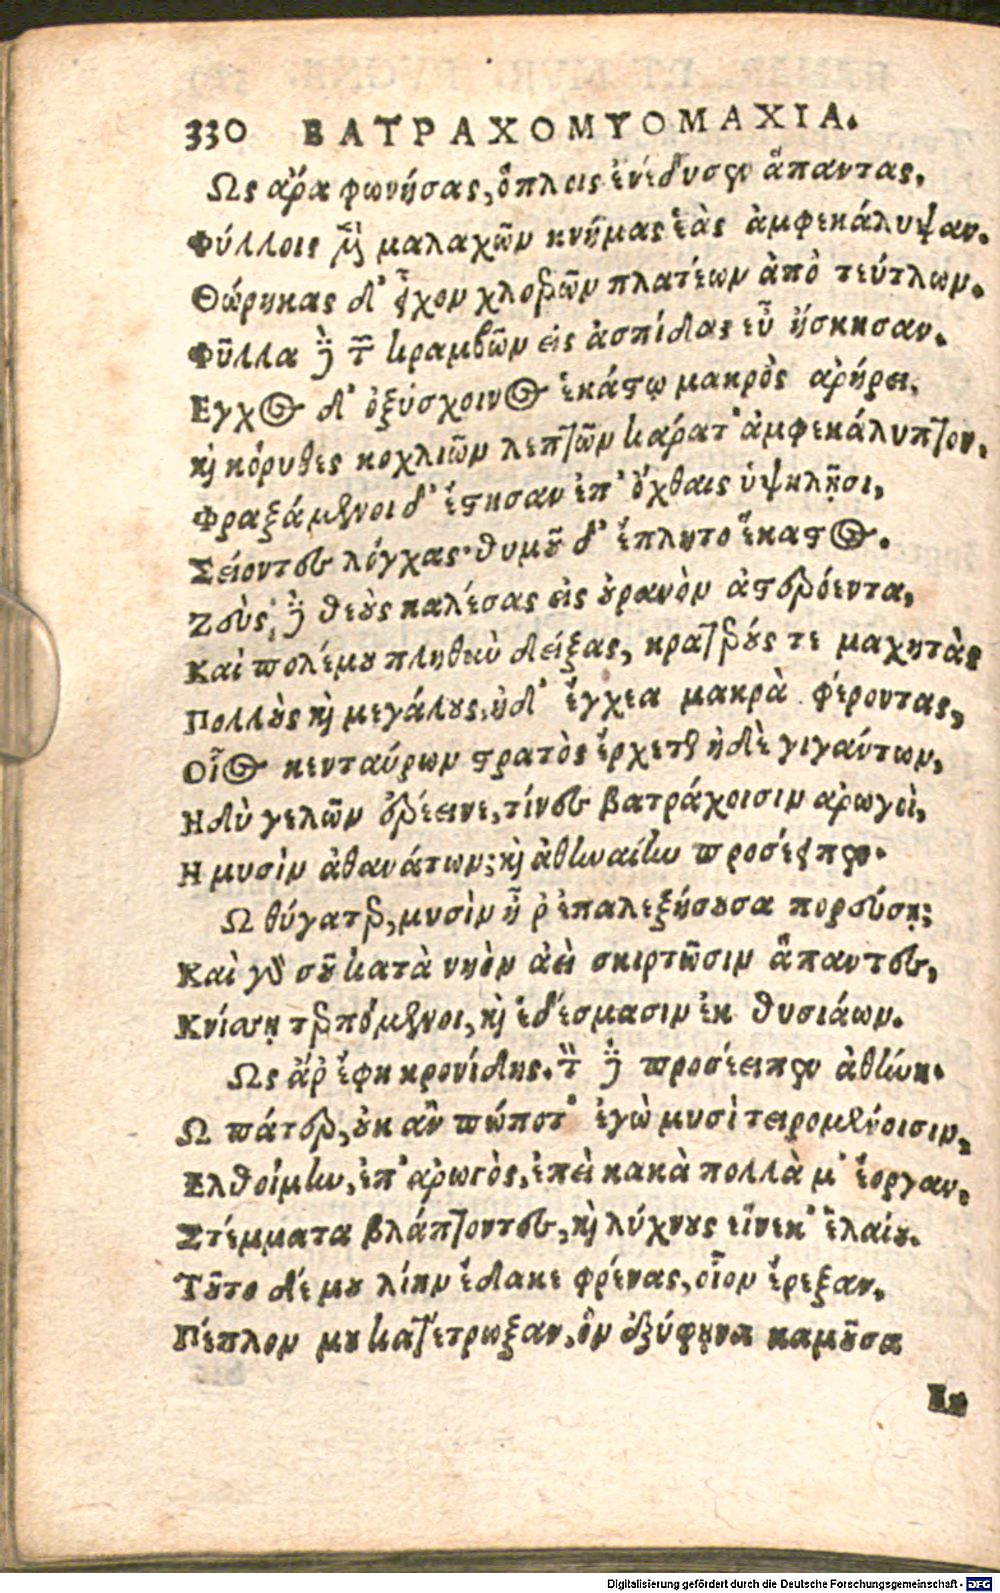 330 ΒΑΤΡΑΧΟΜΥΟΜΑΧΙΑ.
Ως ἄρα φωνήσας, ὅπλοις ἐνέδυσεν ἅπαντας.
Φύλλοις μὲν μαλαχῶν κνήμας ἑὰς ἀμφεκάλυψαν.
Θώρηκας δ' εἶχον χλοερῶν πλατέων ἀπὸ τεύτλων.
Φῦλλα δὲ τῶν κραμβῶν εἰς ἀσπίδας εὖ ἤσκησαν.
Εγχος δ' ὀξύσχοινος ἑκάστῳ μακρὸς ἀρήρει.
καὶ κόρυθες κοχλιῶν λεπτῶν κάρατ' ἀμφεκάλυπτον.
Φραξάμενοι δ' ἔστησαν ἐπ' ὄχθαις ὑψηλῇσι,
Σείοντες λόγχας· θυμοῦ δ' ἔπλητο ἕκαστος.
Ζεὺς, δὲ θεοὺς καλέσας εἰς οὐρανὸν ἀστερόεντα,
Καὶ πολέμου πληθὺν δείξας, κρατερούς τε μαχητὰς
Πολλοὺς καὶ μεγάλους, ἠδ' ἔγχεα μακρὰ φέροντας,
Οἷος κενταύρων στρατὸς ἔρχεται ἠδὲ γιγάντων,
Ηδὺ γελῶν ἐρέεινε, τίνες βατράχοισιν ἀρωγοὶ,
Η μυσὶν ἀθανάτων; καὶ ἀθηναίην προσέειπεν.
Ω θύγατερ, μυσὶν ἦ ῥ' ἐπαλεξήσουσα πορεύσῃ;
Καὶ γὰρ σοῦ κατὰ νηὸν ἀεὶ σκιρτῶσιν ἅπαντες,
Κνίσῃ τερπόμενοι, καὶ ἐδέσμασιν ἐκ θυσιάων.
Ως ἄρ' ἔφη κρονίδης. τὸν δὲ προσέειπεν ἀθήνη.
Ω πάτερ, οὐκ ἂν πώποτ' ἐγὼ μυσὶ τειρομένοισιν,
Ελθοίμην, ἐπ' ἀρωγὸς, ἐπεὶ κακὰ πολλὰ μ' ἔοργαν.
Στέμματα βλάπτοντες, καὶ λύχνους εἵνεκ' ἐλαίου.
Τοῦτο δέ μου λίην ἔδακε φρένας, οἷον ἔρεξαν.
Πέπλον μου κατέτρωξαν, ὃν ἐξύφηνα καμοῦσα
Εκ
Digitalisierung gefördert durch die Deutsche Forschungsgemeinschaft - DFG